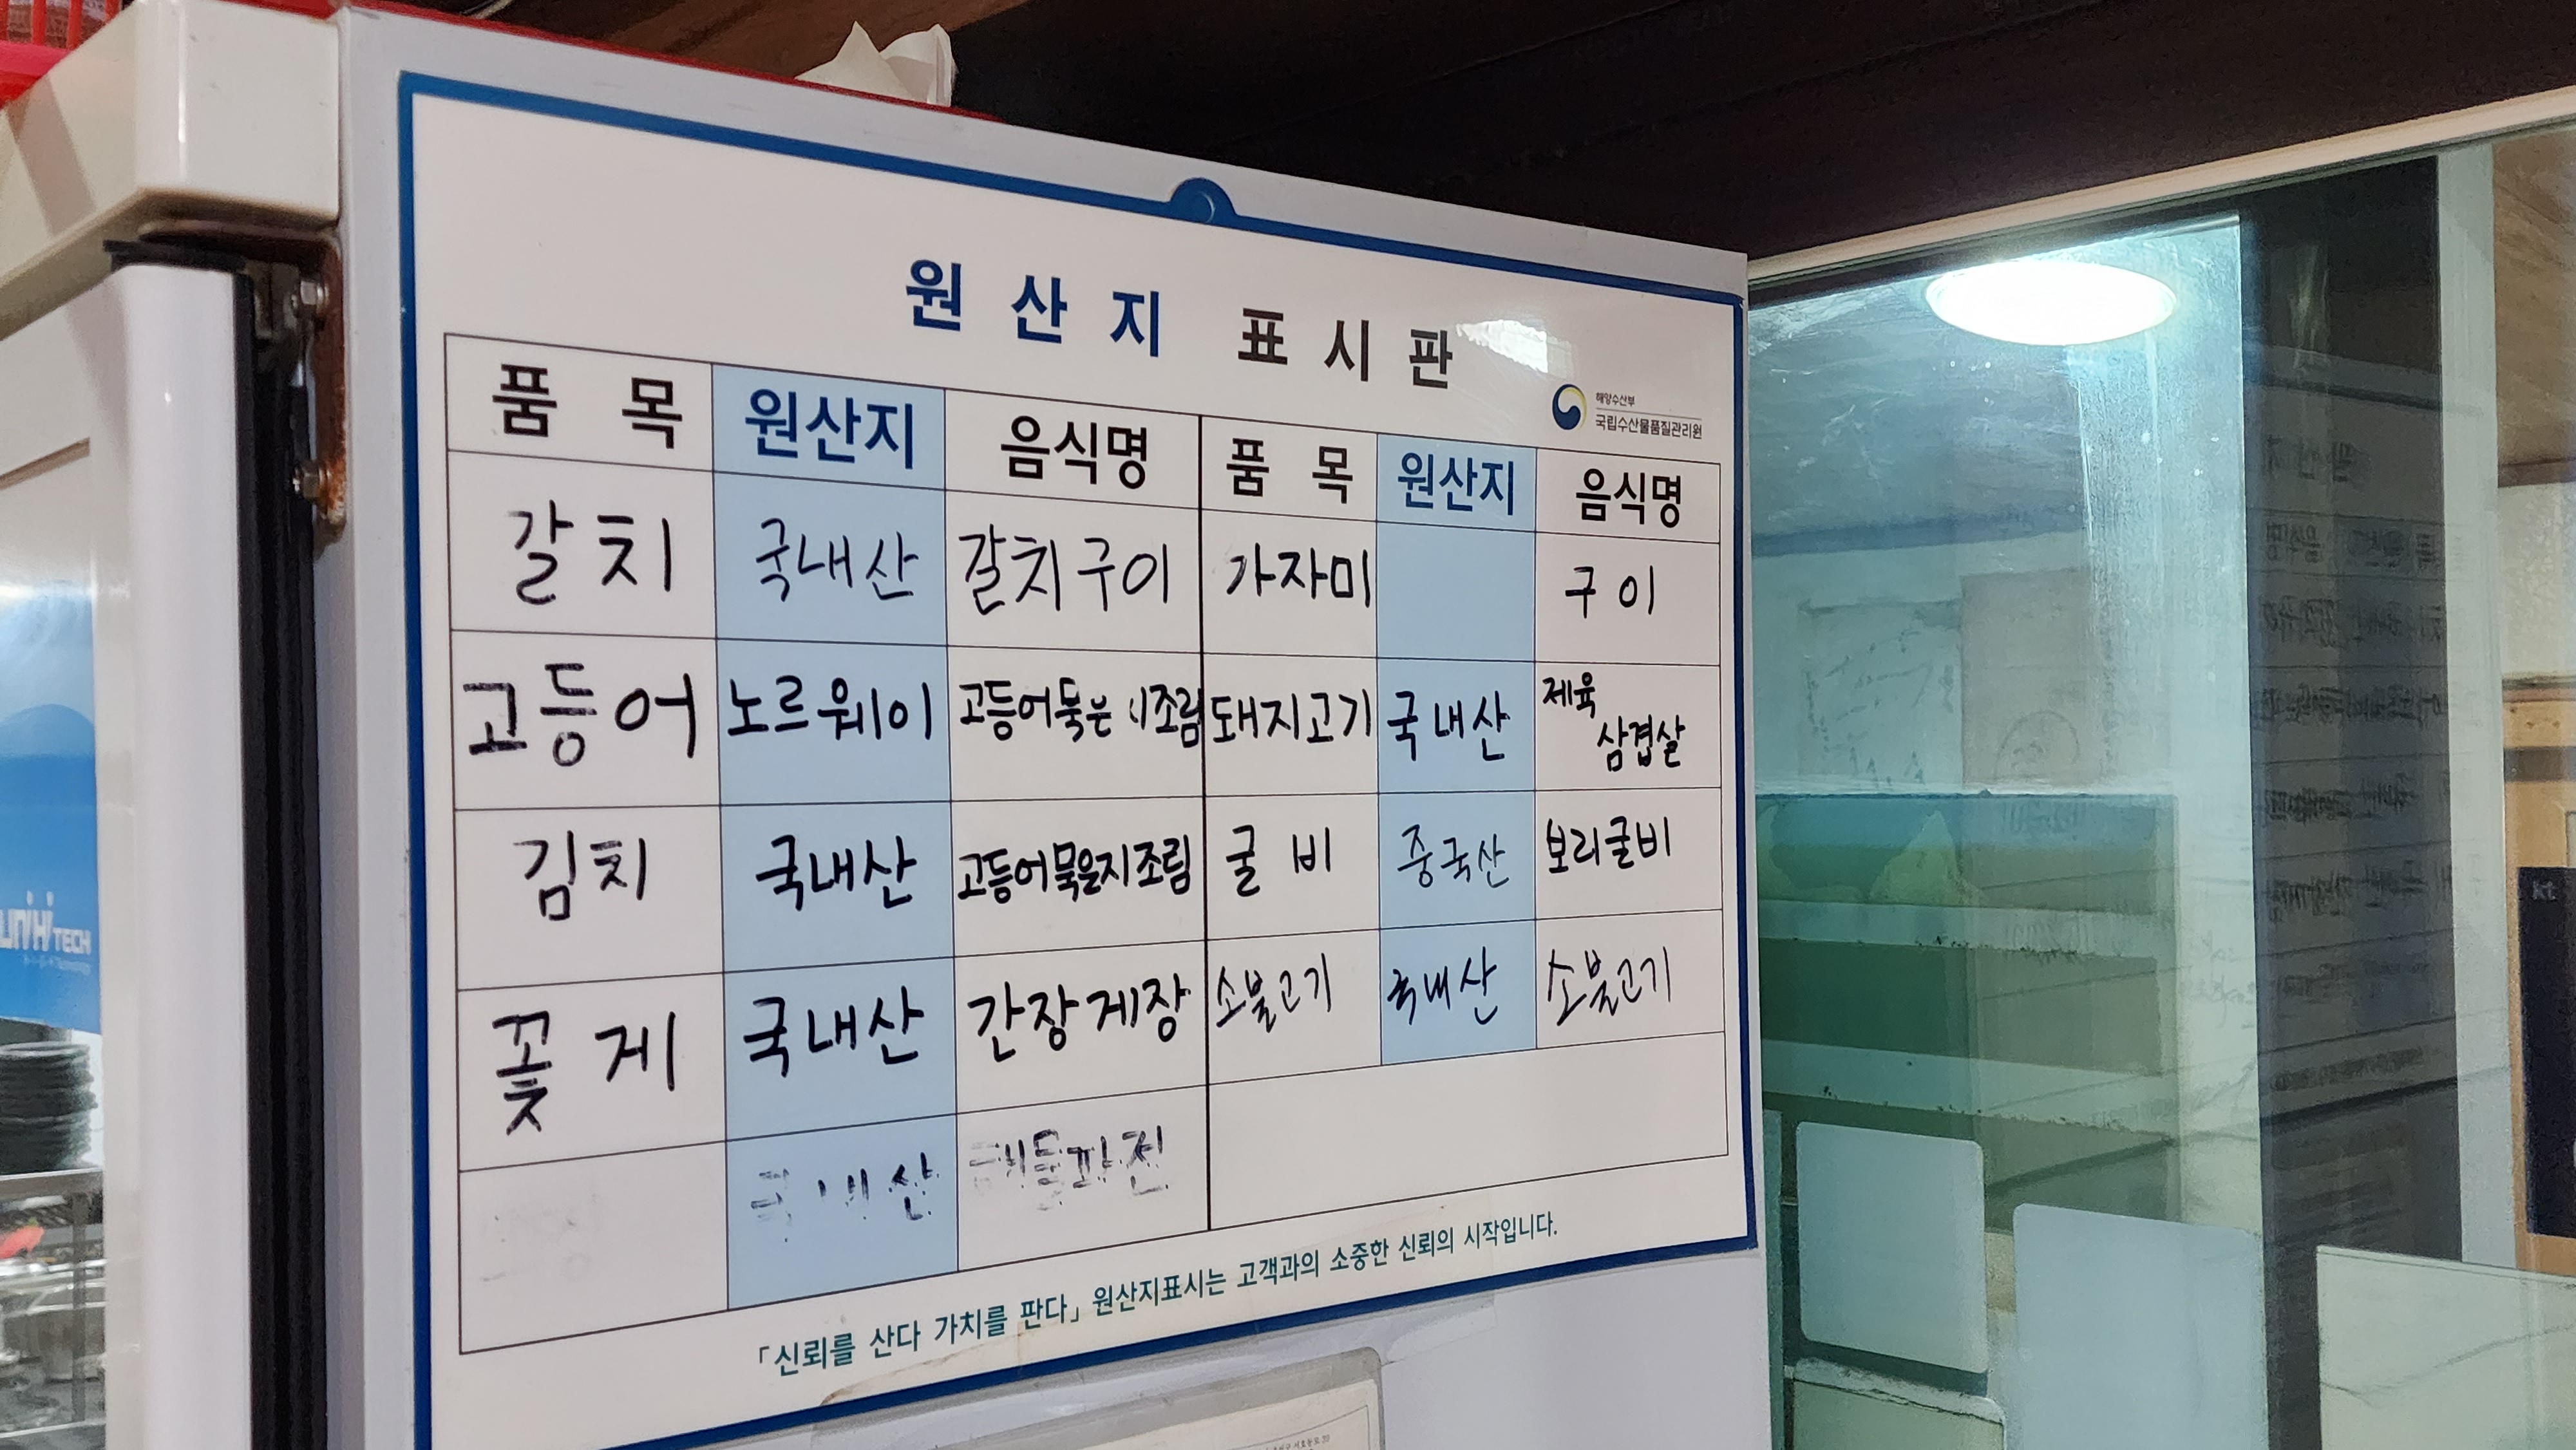 원산지 표시판
해양수산부
국립수산물품질관리원
품 목 원산지 음식명 품 목 원산지 음식명
갈치 국내산 갈치구이 가자미 구이
고등어 노르웨이 고등어묵은 조림 돼지고기 국내산 제육 삼겹살
김치 국내산 고등어묵은지조림 굴비 중국산 보리굴비
꽃게 국내산 간장게장 소불고기 국내산 소불고기
국내산
「신뢰를 산다 가치를 판다」 원산지표시는 고객과의 소중한 신뢰의 시작입니다.
UNiHi TECH
kt